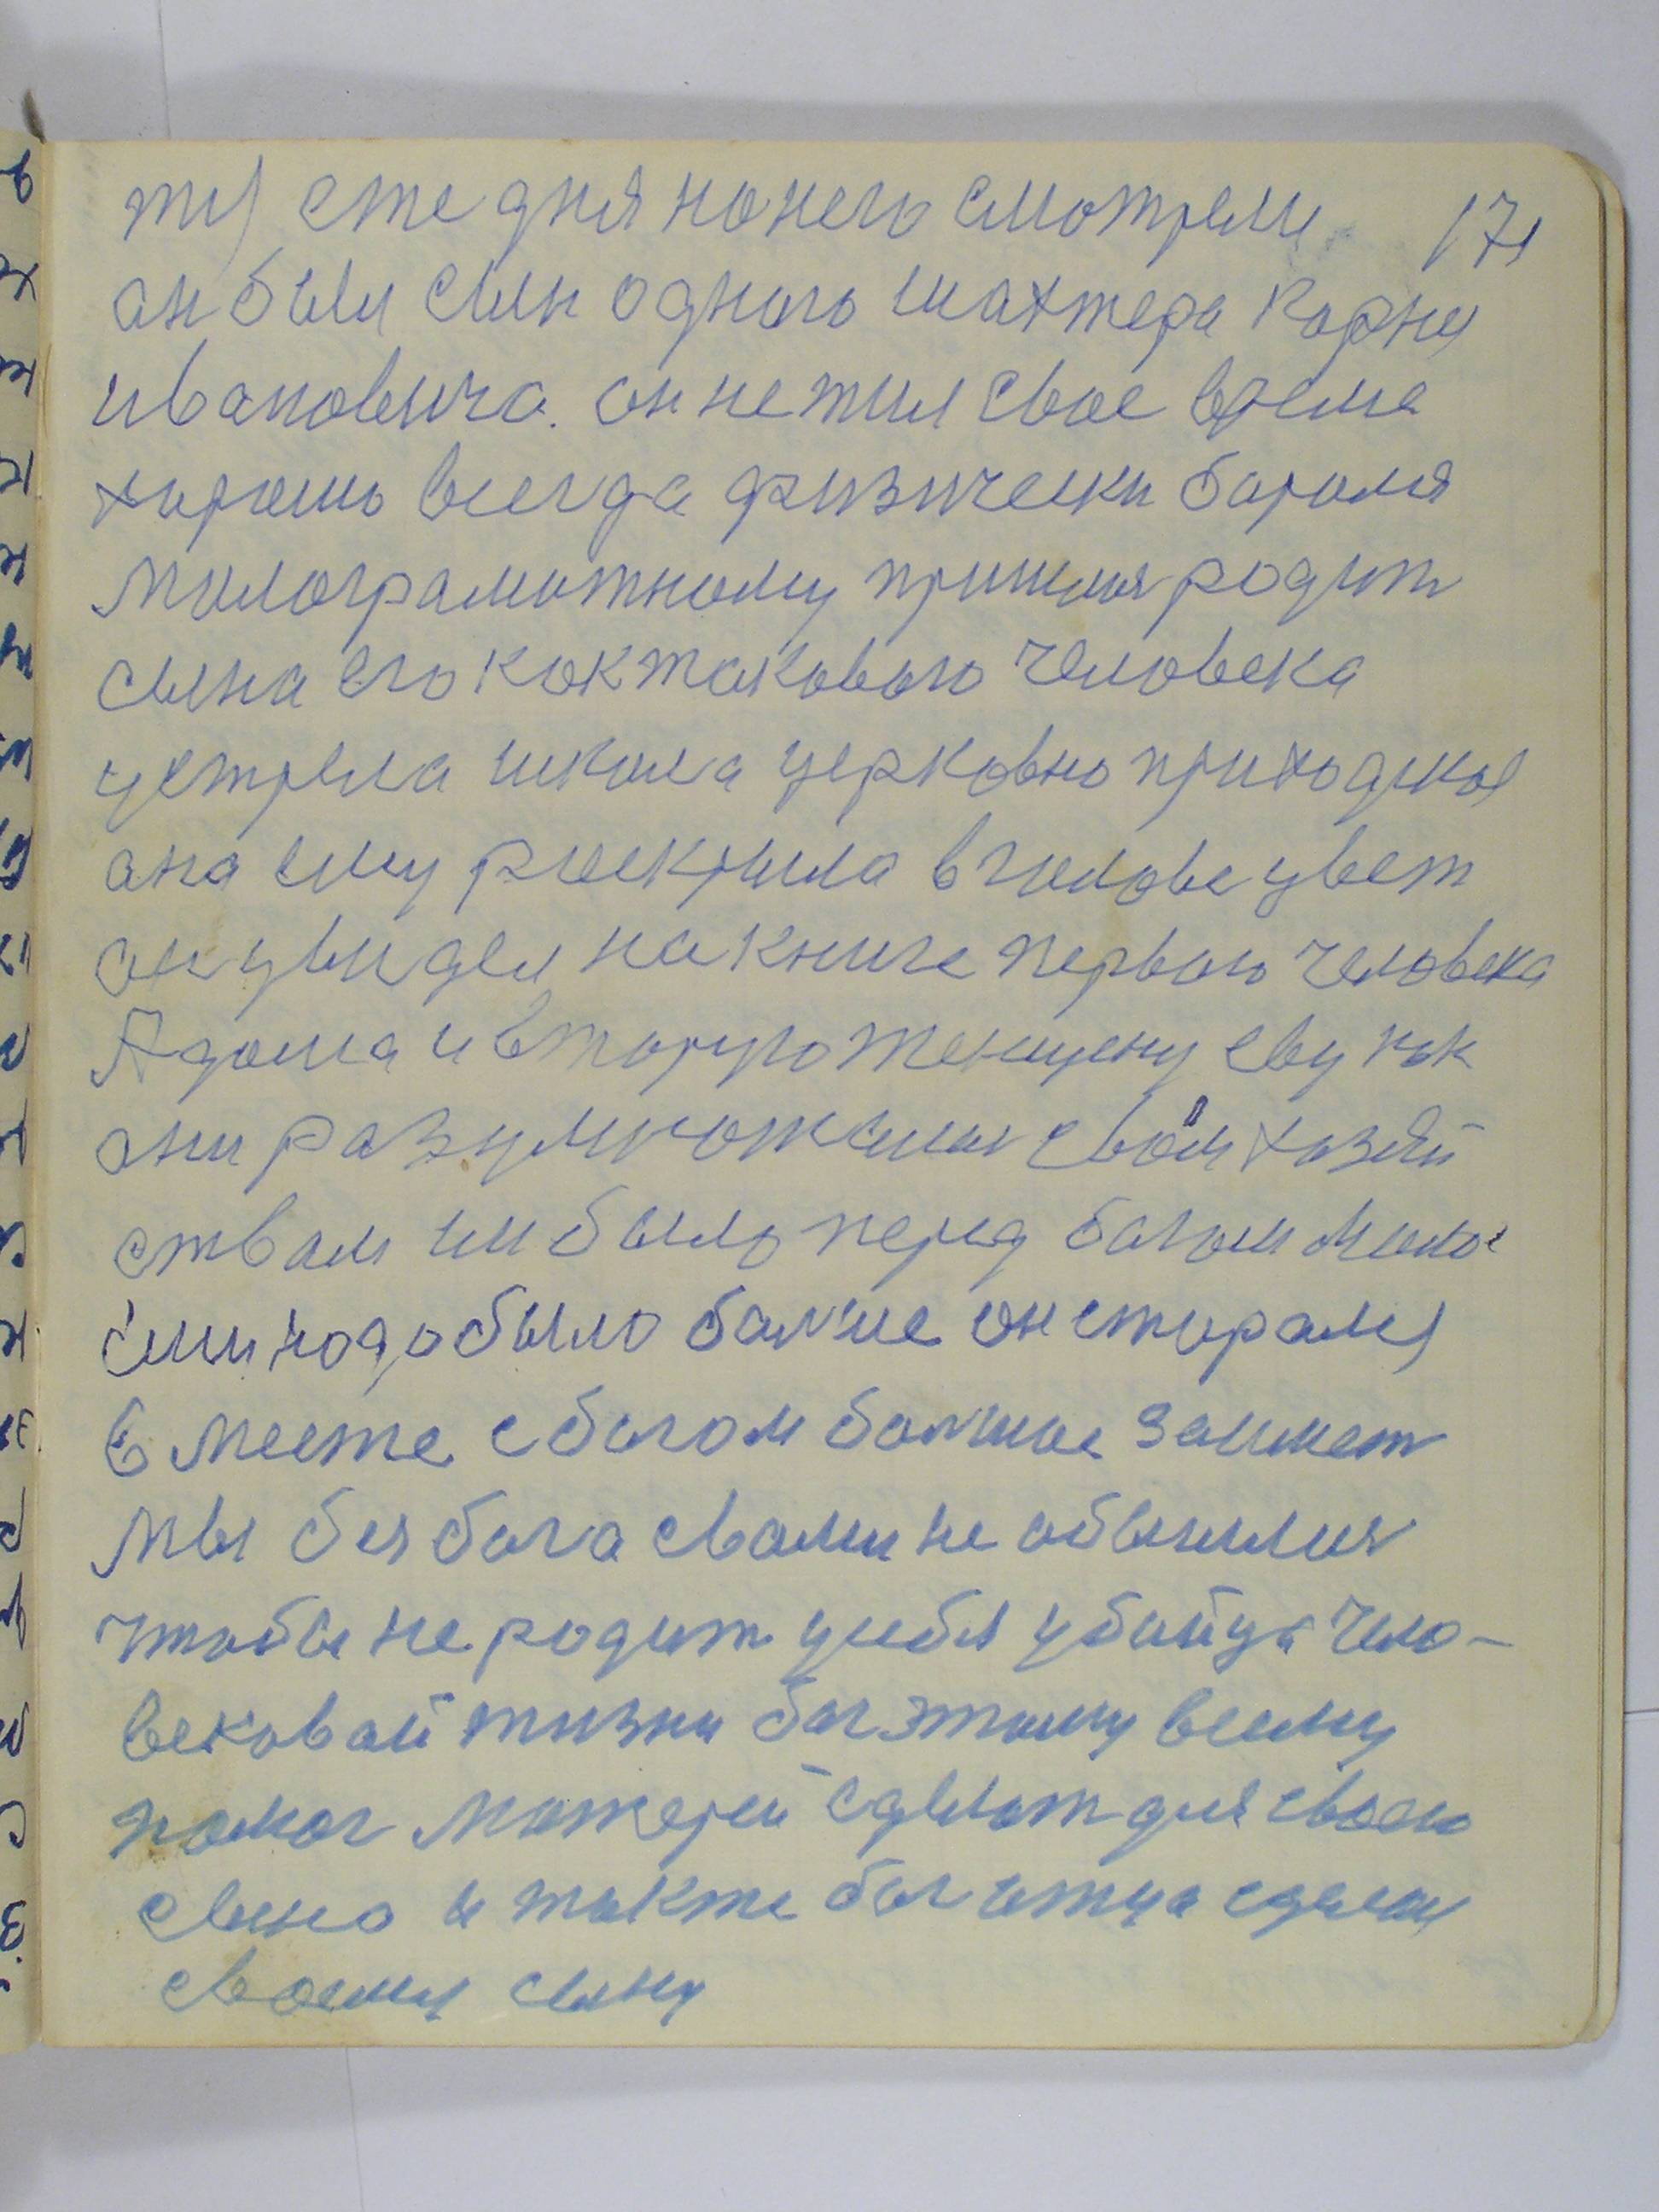 сте дня нанего смотрели 171
он был сын одного шахтера Карнея
ивановича. он не жил свое время
хорошо всегда физически боролся
малограмотному пришлся родит
сына его как таковога человека
устрела школа церковно приходская
она ему раскрыла в голове цвет
он увидел на книге первого человека
Адама и вторую женщену еву как
они разумножались своим хазяй
ством им было перед богом мало
им надо было болше он старался
в месте с богом болшое займет
мы без бога свами не обошлися
чтобы не родит усебя убийца чело-
вековай жизни бог этому всему
помог матерей сделат для своего
сына и также бог отца сделал
своему сыну